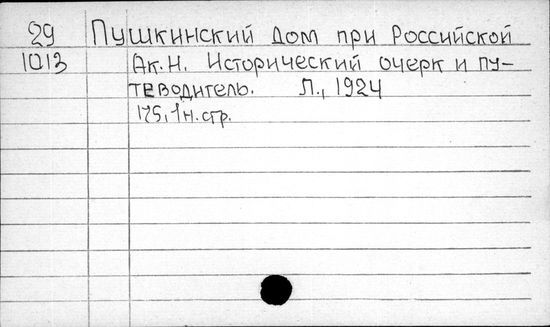 29 Пушкинский Дом при Российской
1013 Ак.Н. Исторический очерк и пу-
теводитель. Л., 1924
175, 1 н. стр.